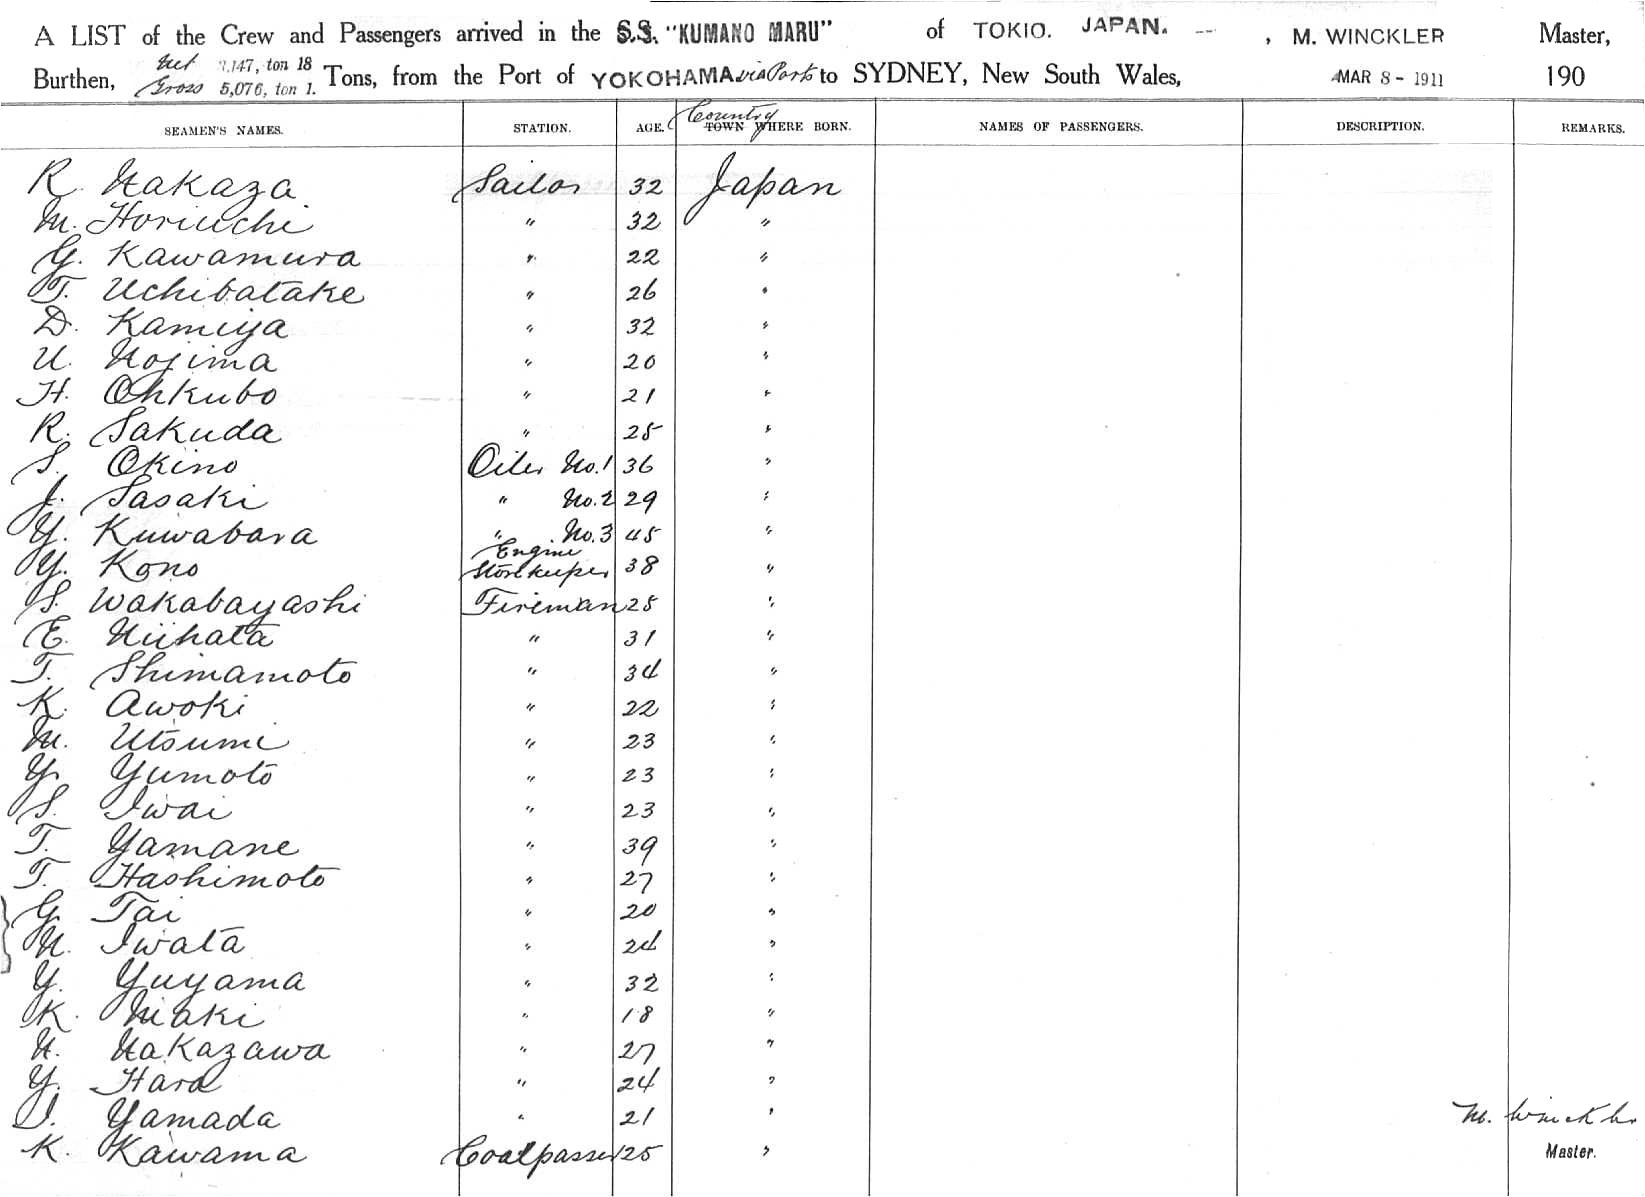 A LIST of the Crew and Passengers arrived in the S.S. "KUMANO MARU" of TOKIO. JAPAN. , M. WINCKLER Master,
Burthen, Net 3,147, ton 18 Gross 5,076, ton 1. Tons, from the Port of YOKOHAMA via Ports to SYDNEY, New South Wales, MAR 8 - 1911 190
SEAMEN'S NAMES. STATION. AGE. Country TOWN WHERE BORN. NAMES OF PASSENGERS. DESCRIPTION. REMARKS.
R. Nakaza Sailor 32 Japan
M. Horiuchi " 32 "
G. Kawamura " 22 "
T. Uchibatake " 26 "
D. Kamiya " 32 "
U. Nojima " 20 "
H. Ohkubo " 21 "
R. Sakuda " 25 "
S. Okino Oiler No.1 36 "
J. Sasaki " No.2 29 "
Y. Kuwabara " No.3 45 "
Y. Kono Engine Storekeeper 38 "
S. Wakabayashi Fireman 25 "
E. Niihata " 31 "
T. Shimamoto " 34 "
K. Awoki " 22 "
M. Utsumi " 23 "
Y. Yumoto " 23 "
S. Iwai " 23 "
T. Yamane " 39 "
T. Hashimoto " 27 "
G. Tai " 20 "
N. Iwata " 24 "
Y. Yuyama " 32 "
K. Maki " 18 "
N. Nakazawa " 27 "
Y. Hara " 24 "
I. Yamada " 21 "
K. Kawama Coalpasser 25 "
M. Winckler
Master.